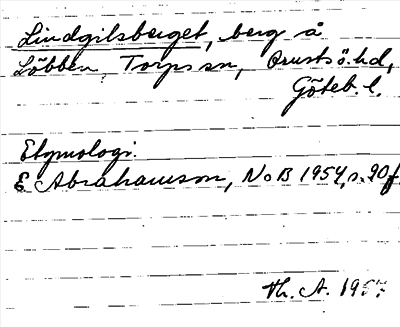 Lindgilsberget, berg å
Löbben, Torps sn, Orusts ö. hd,
Göteb. l.
Etymologi.
E Abrahamson, NoB 1954, s. 90 f.
Th. A. 1957